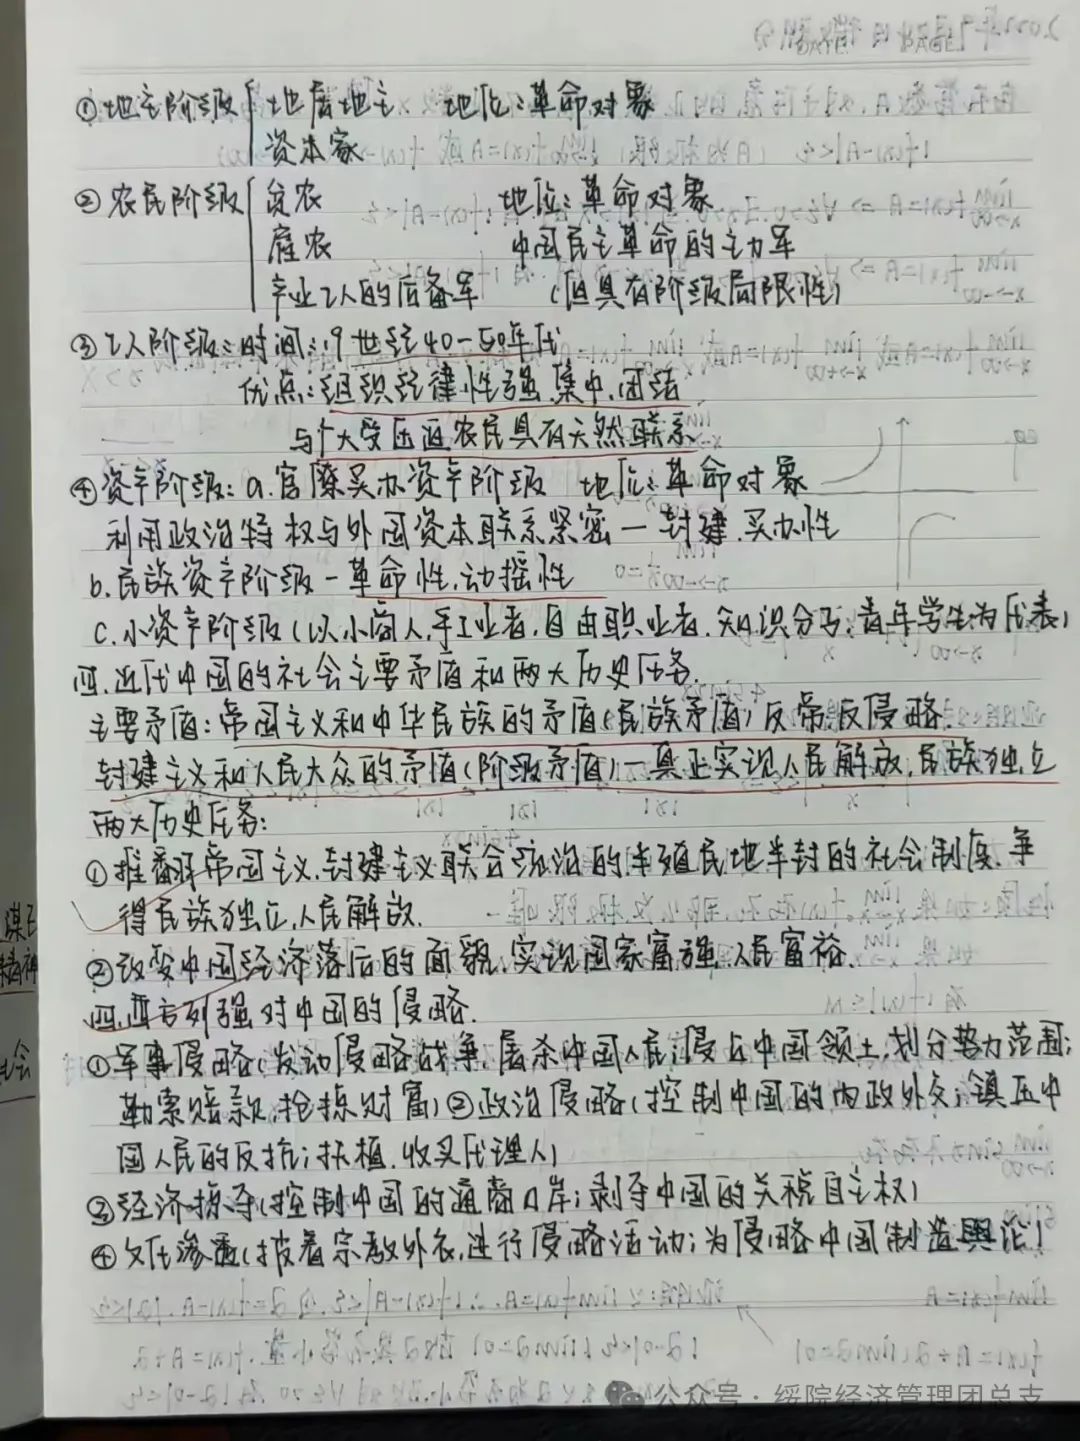 ①地主阶级 地居地主 地位:革命对象
资本家
②农民阶级 贫农 地位:革命对象
雇农 中国民主革命的主力军
产业工人的后备军 (但具有阶级局限性)
③工人阶级:时间:19世纪40-50年代
优点:组织纪律性强.集中.团结
与广大受压迫农民具有天然联系
④资产阶级:a.官僚买办资产阶级 地位:革命对象
利用政治特权与外国资本联系紧密一封建.买办性
b.民族资产阶级-革命性.动摇性
C.小资产阶级(以小商人.手工业者.自由职业者.知识分子.青年学生为代表)
四.近代中国的社会主要矛盾和两大历史任务.
主要矛盾:帝国主义和中华民族的矛盾(民族矛盾)反帝.反侵略.
封建主义和人民大众的矛盾(阶级矛盾)一真正实现人民解放.民族独立
两大历史任务:
①推翻帝国主义.封建主义联合统治的半殖民地半封的社会制度.争
得民族独立.人民解放.
②改变中国经济落后的面貌.实现国家富强.人民富裕.
四.西方列强对中国的侵略.
①军事侵略(发动侵略战争.屠杀中国人民;侵占中国领土,划分势力范围;
勒索赔款.抢掠财富)②政治侵略(控制中国的内政外交;镇压中
国人民的反抗;扶植.收买代理人)
③经济掠夺(控制中国的通商口岸;剥夺中国的关税自主权)
④文化渗透(披着宗教外衣.进行侵略活动;为侵略中国制造舆论)
精神
社会
公众号·绥院经济管理团总支